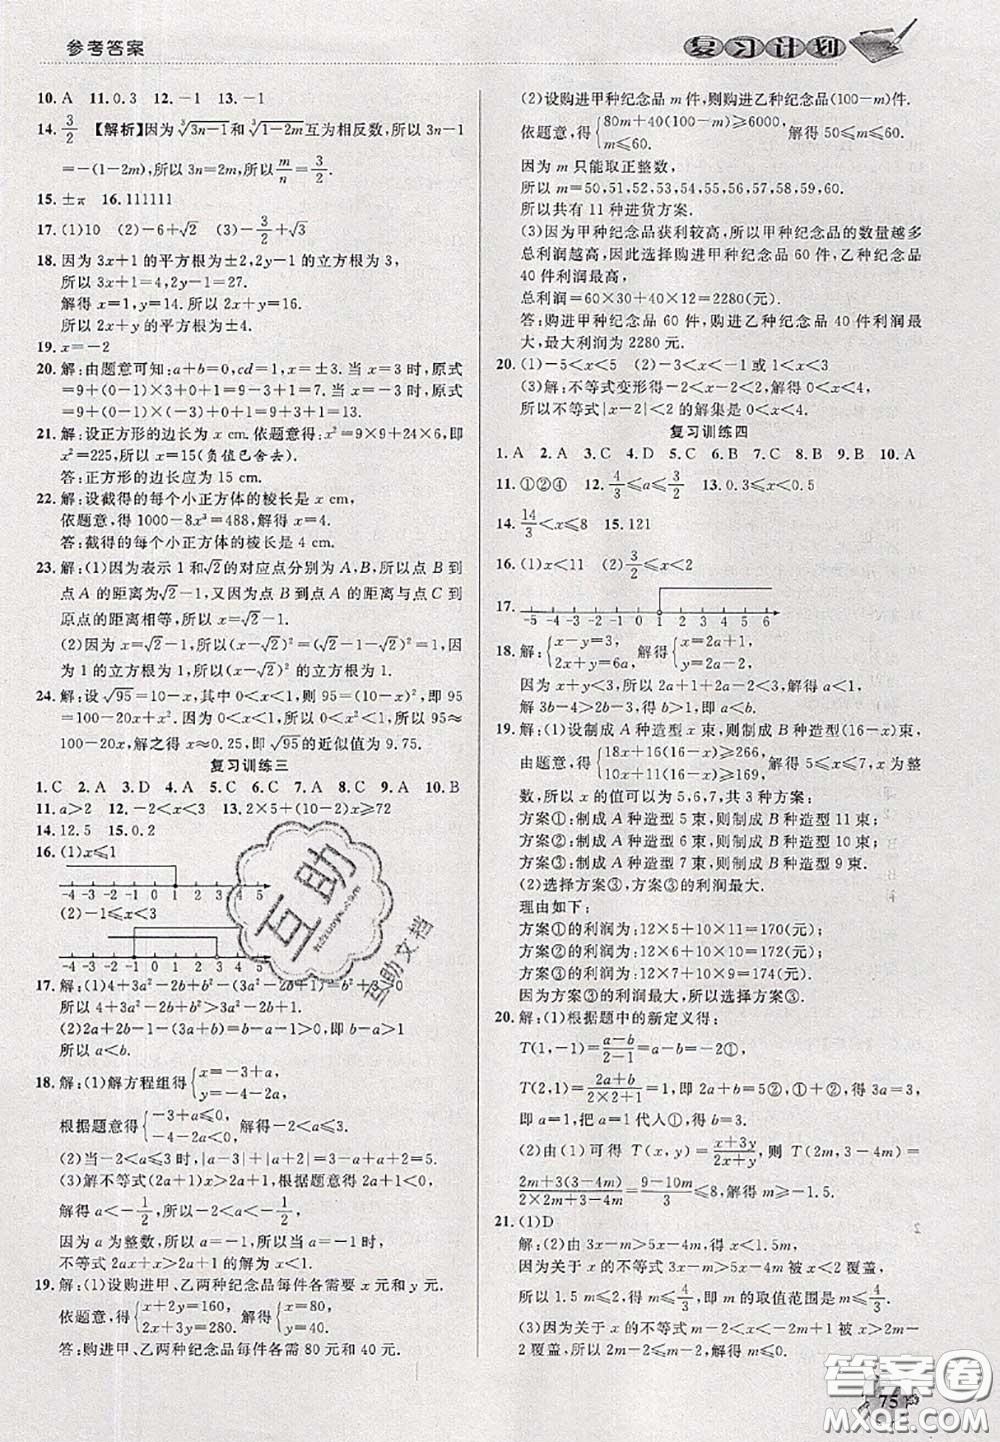 参考答案
复习计划
10. A 11. 0. 3 12. －1 13. －1
14. 3/2 【解析】因为∛(3n－1)和∛(1－2m)互为相反数,所以 3n－1
＝－(1－2m),所以 3n＝2m,所以 m/n＝3/2.
15. ±π 16. 111111
17. (1)10 (2)－6＋√2 (3)－3/2＋√3
18. 因为 3x＋1 的平方根为±2,2y－1 的立方根为 3,
所以 3x＋1＝4,2y－1＝27.
解得 x＝1,y＝14. 所以 2x＋y＝16.
所以 2x＋y 的平方根为±4.
19. x＝－2
20. 解:由题意可知:a＋b＝0,cd＝1,x＝±3. 当 x＝3 时,原式
＝9＋(0－1)×3＋0＋1＝9－3＋1＝7. 当 x＝－3 时,原式
＝9＋(0－1)×(－3)＋0＋1＝9＋3＋1＝13.
21. 解:设正方形的边长为 x cm. 依题意,得 x²＝9×9＋24×6,即
x²＝225,所以 x＝15(负值已舍去).
答:正方形的边长应为 15 cm.
22. 解:设截得的每个小正方体的棱长是 x cm,
依题意,得 1000－8x³＝488,解得 x＝4.
答:截得的每个小正方体的棱长是 4 cm.
23. 解:(1)因为表示 1 和√2的对应点分别为 A,B,所以点 B 到
点 A 的距离为√2－1,又因为点 B 到点 A 的距离与点 C 到
原点的距离相等,所以 x＝√2－1.
(2)因为 x＝√2－1,所以(x－√2)²＝(√2－1－√2)²＝1,因
为 1 的立方根为 1,所以(x－√2)²的立方根为 1.
24. 解:设√95＝10－x,其中 0＜x＜1,则 95＝(10－x)²,即 95
＝100－20x＋x². 因为 0＜x＜1,所以 0＜x²＜1,所以 95≈
100－20x,解之得 x≈0. 25,即√95的近似值为 9. 75.
复习训练三
1. C 2. A 3. D 4. A 5. C 6. A 7. C 8. A 9. A 10. B
11. a＞2 12. －2＜x＜3 13. 2×5＋(10－2)x≥72
14. 12. 5 15. 0. 2
16. (1)x≤1
－4 －3 －2 －1 0 1 2 3 4 5
(2)－1≤x＜3
－4 －3 －2 －1 0 1 2 3 4 5
17. (1)4＋3a²－2b＋b²－(3a²－2b＋1)＝b²＋3＞0
所以 4＋3a²－2b＋b²＞3a²－2b＋1.
(2)2a＋2b－1－(3a＋b)＝－a＋b－1＞0,即 b－1＞a
所以 a＜b.
18. 解:(1)解方程组得{x＝－3＋a, y＝－4－2a.
根据题意得{－3＋a≤0, －4－2a＜0. 解得－2＜a≤3.
(2)当－2＜a≤3 时,|a－3|＋|a＋2|＝3－a＋a＋2＝5.
(3)解不等式(2a＋1)x＞2a＋1,根据题意得 2a＋1＜0,
解得 a＜－1/2,所以－2＜a＜－1/2,
因为 a 为整数,所以 a＝－1,所以当 a＝－1 时,
不等式 2ax＋x＞2a＋1 的解为 x＜1.
19. 解:(1)设购进甲、乙两种纪念品每件各需要 x 元和 y 元.
依题意,得{x＋y＝160, 2x＋3y＝280. 解得{x＝80, y＝40.
答:购进甲、乙两种纪念品每件各需 80 元和 40 元.
(2)设购进甲种纪念品 m 件,则购进乙种纪念品(100－m)件.
依题意,得{80m＋40(100－m)≥6000, m≤60. 解得 50≤m≤60.
因为 m 只能取正整数,
所以 m＝50,51,52,53,54,55,56,57,58,59,60.
所以共有 11 种进货方案.
(3)因为甲种纪念品获利较高,所以甲种纪念品的数量越多
总利润越高,因此选择购进甲种纪念品 60 件,乙种纪念品
40 件利润最高,
总利润＝60×30＋40×12＝2280(元).
答:购进甲种纪念品 60 件,购进乙种纪念品 40 件利润最
大,最大利润为 2280 元.
20. (1)－5＜x＜5 (2)－3＜x＜－1 或 1＜x＜3
(3)解:不等式变形得－2＜x－2＜2,解得 0＜x＜4,
所以不等式|x－2|＜2 的解集是 0＜x＜4.
复习训练四
1. A 2. A 3. C 4. D 5. C 6. C 7. D 8. B 9. B 10. A
11. ①②④ 12. 4/3≤a≤3/2 13. 0. 3≤x＜0. 5
14. 14/3＜x≤8 15. 121
16. (1)x＜11 (2)3/2≤x＜2
17. －5 －4 －3 －2 －1 0 1 2 3 4 5 6
18. 解:{x－y＝3, 2x＋y＝6a. 解得{x＝2a＋1, y＝2a－2.
因为 x＋y＜3,所以 2a＋1＋2a－2＜3,解得 a＜1,
解 3b－4＞2b－3,得 b＞1,所以 a＜b.
19. 解:(1)设制成 A 种造型 x 束,则制成 B 种造型(16－x)束.
依题意,得{18x＋16(16－x)≥266, 11x＋16(16－x)≥219. 解得 5≤x≤7.4.
所以 x 的值可以为 5,6,7,共 3 种方案:
方案①:制成 A 种造型 5 束,则制成 B 种造型 11 束;
方案②:制成 A 种造型 6 束,则制成 B 种造型 10 束;
方案③:制成 A 种造型 7 束,则制成 B 种造型 9 束.
(2)选择方案③,方案③的利润最大.
理由如下:
方案①的利润为:12×5＋10×11＝170(元);
方案②的利润为:12×6＋10×10＝172(元);
方案③的利润为:12×7＋10×9＝174(元).
因为方案③的利润最大,所以选择方案③.
20. 解:(1)根据题中的新定义得:
T(1,－1)＝(a－b)/(2－1)＝a－b＝－2①,
T(2,1)＝(2a＋b)/(2×2＋1)＝1,即 2a＋b＝5②,①＋②,得 3a＝3,
即 a＝1,把 a＝1 代入①,得 b＝3.
(2)由(1)可得 T(x,y)＝(x＋3y)/(2x＋y),则 T(2m,3－4m)＝
(2m＋3(3－4m))/(2×2m＋3－4m)＝(9－10m)/3≤8,解得 m≥－3/2.
21. (1)D
解:(2)由 3x－m＞5x－4m,得 x＜1. 5m,
因为关于 x 的不等式 3x－m＞5x－4m 被 x＜2 覆盖,
所以 1. 5m≤2,得 m≤4/3,即 m 的取值范围是 m≤4/3.
(3)因为关于 x 的不等式 2m－2＜x＜－2m－1 被 x＞
2 覆盖,所以 2m－2≥2
互助
互助文档
答案圈
MXQE.COM
75